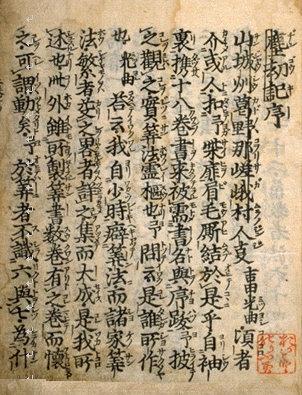 塵劫記序
山城州葛野郡嵯峨村人支吉田光由頃者
介或人扣予柴扉眉毛厮結於是乎自袖
裏十八卷書来被需書名與序跋予披
之觀之實算法靈樞也予問云是誰所作
也光由答云我自少時算法而諸家算
法繁者芟之者詳之集而大成是我所
述也此外雖可製算書數卷有之卷而懷
之可謂勤矣予於算者不識六與七為什